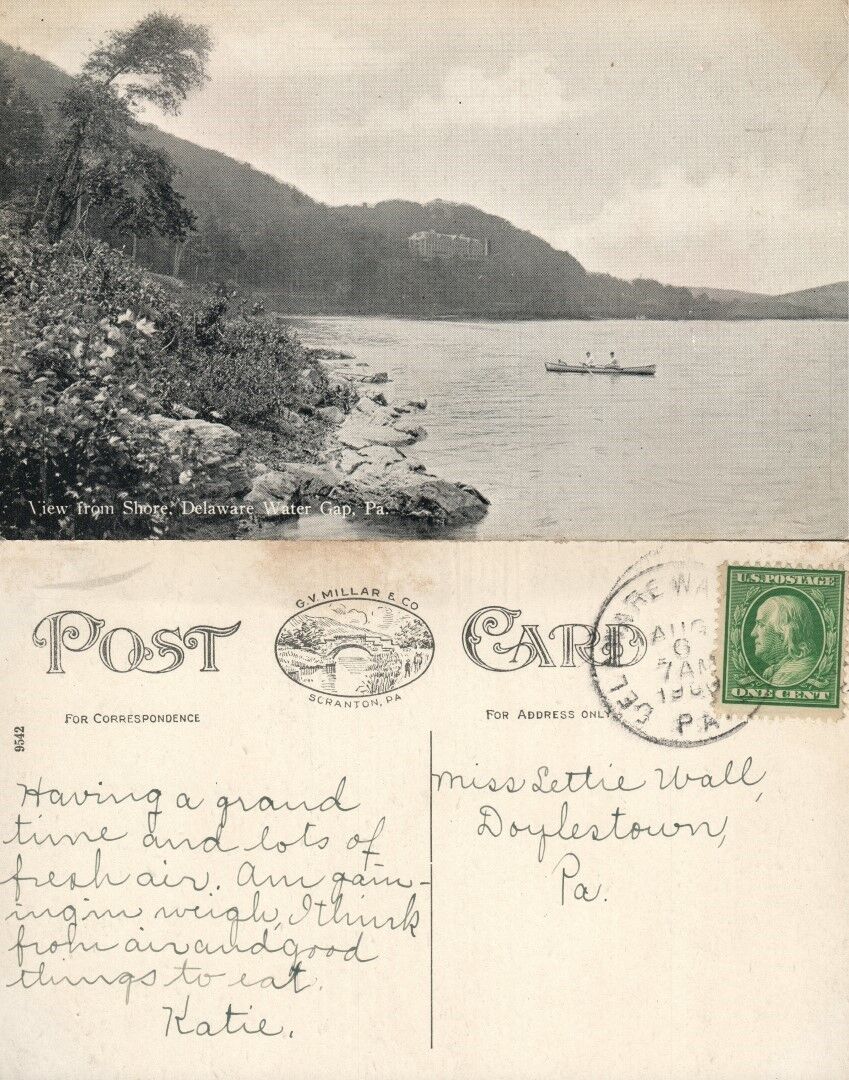 View from Shore, Delaware Water Gap, Pa.
POST CARD
G.V. MILLAR & CO
SCRANTON, PA
FOR CORRESPONDENCE
FOR ADDRESS ONLY
9542
DELAWARE WA
AUG
6
7AM
PA.
U.S. POSTAGE
ONE CENT
Having a grand
time and lots of
fresh air. Am gain-
ing in weigh, I think
from air and good
things to eat.
Katie.
Miss Lettie Wall,
Doylestown,
Pa.